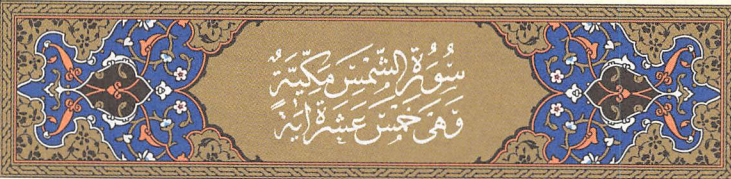 سُورَةُ الشَّمْسِ مَكِّيَّةٌ
وَهِىَ خَمْسَ عَشَرَةَ اٰيَةً